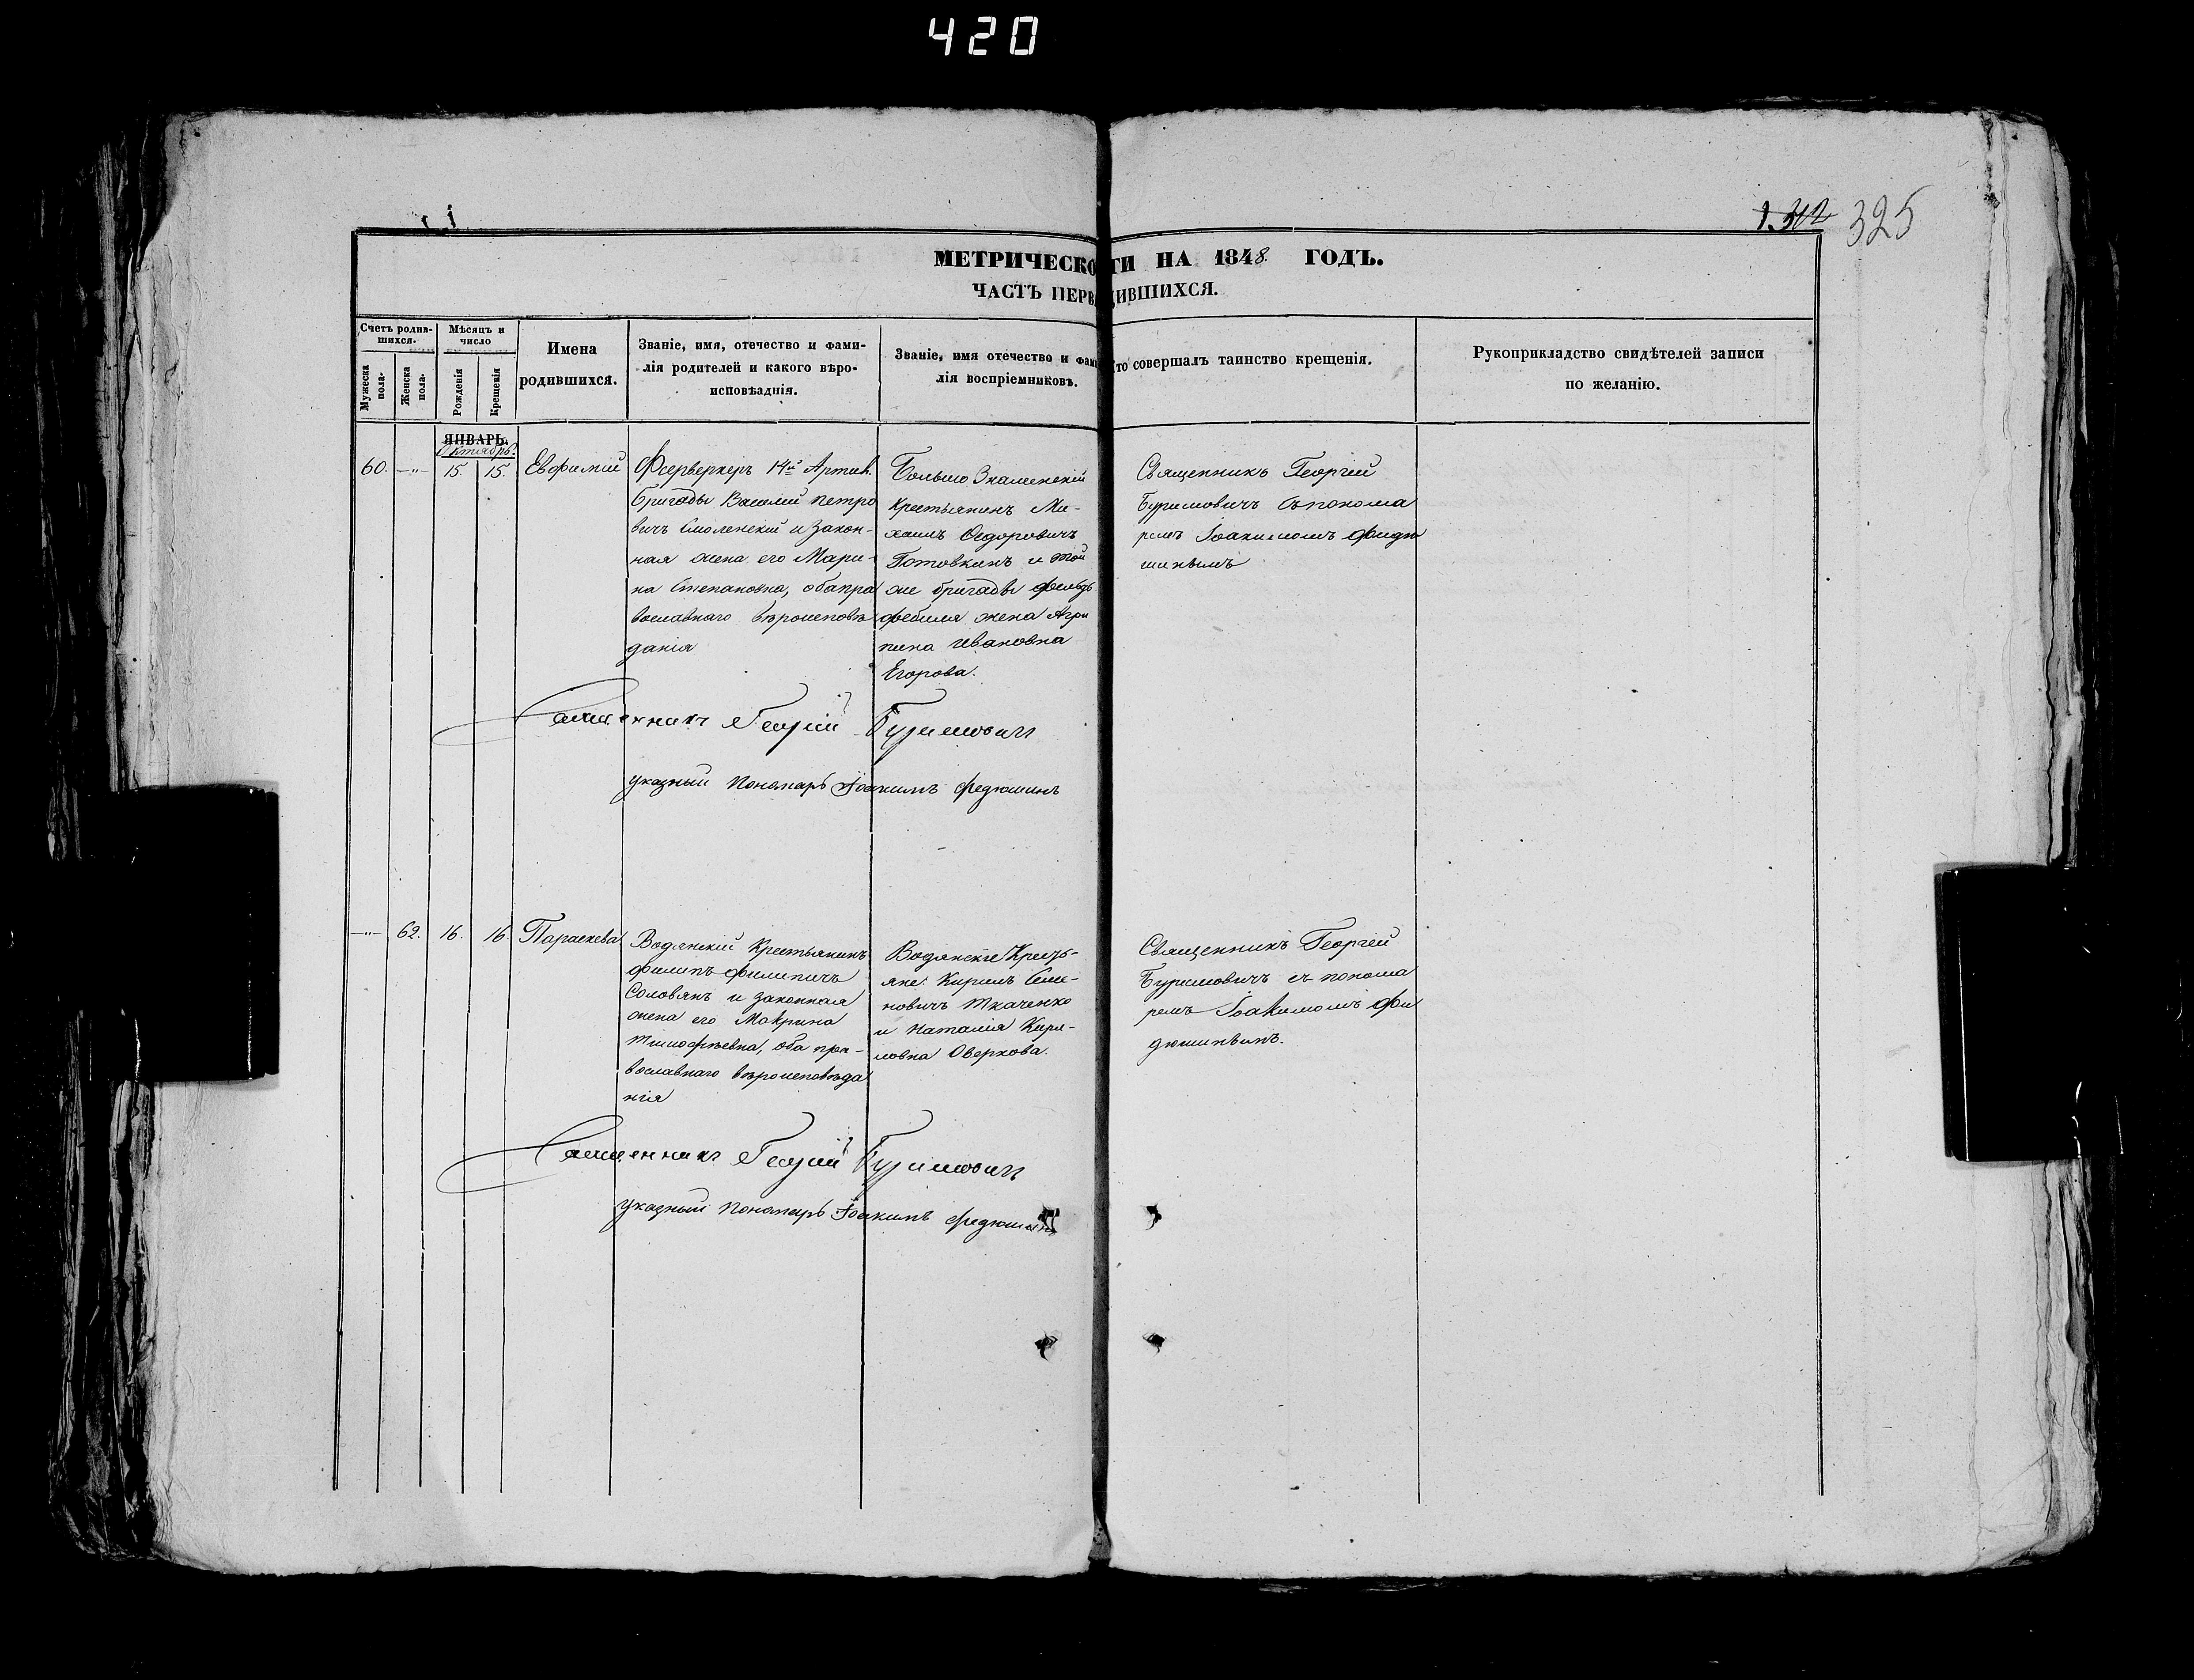 420
1.312 325
МЕТРИЧЕСКО ТИ НА 1848 ГОДЪ.
ЧАСТЬ ПЕРВ ДИВШИХСЯ.
Счетъ родив-
шихся.
Мужеска
пола.
Женска
пола.
Мѣсяцъ и
число
Рожденія
Крещенія
Имена
родившихся.
Званіе, имя, отечество и фами-
лія родителей и какого вѣро-
исповѣаднія.
Званіе, имя отечество и фами
лія воспріемниковъ.
то совершалъ таинство крещенія.
Рукоприкладство свидѣтелей записи
по желанію.
ЯНВАРЬ.
Октябрь.
60. —"— 15. 15. Евфимій
Фееерверкеръ 14й Артил.
бригады Василий Петро
вичъ Смоленскій и закон-
ная жена его Мари-
на Степановна, оба пра
вославнаго вѣроисповѣ
данія
Больше Знаменскій
Крестьянинъ Ми-
хаилъ Ѳедоровичъ
Готовкинъ и той
же бригады фельд
фебеля жена Агри
пина Ивановна
Егорова.
Священникъ Георгій
Буримовичъ съ понома
ремъ Іоакимомъ Фидю
шинымъ
Священникъ Георгій Буримовичъ
указный Пономарь Іоакимъ Федюшинъ
—"— 62. 16. 16. Параскева
Водянскій Крестьянинъ
Филипъ Филипичъ
Соловянъ и законная
жена его Макрина
Тимофѣевна, оба пра-
вославнаго вѣроисповѣда
нія
Водянскіе Кресть-
яне: Кирилъ Семе-
новичъ Ткаченко
и Наталія Кири-
ловна Оверкова.
Священникъ Георгій
Буримовичъ съ понома
ремъ Іоакимомъ Фи
дюшинымъ.
Священникъ Георгій Буримовичъ
указный Пономарь Іоакимъ Федюшинъ